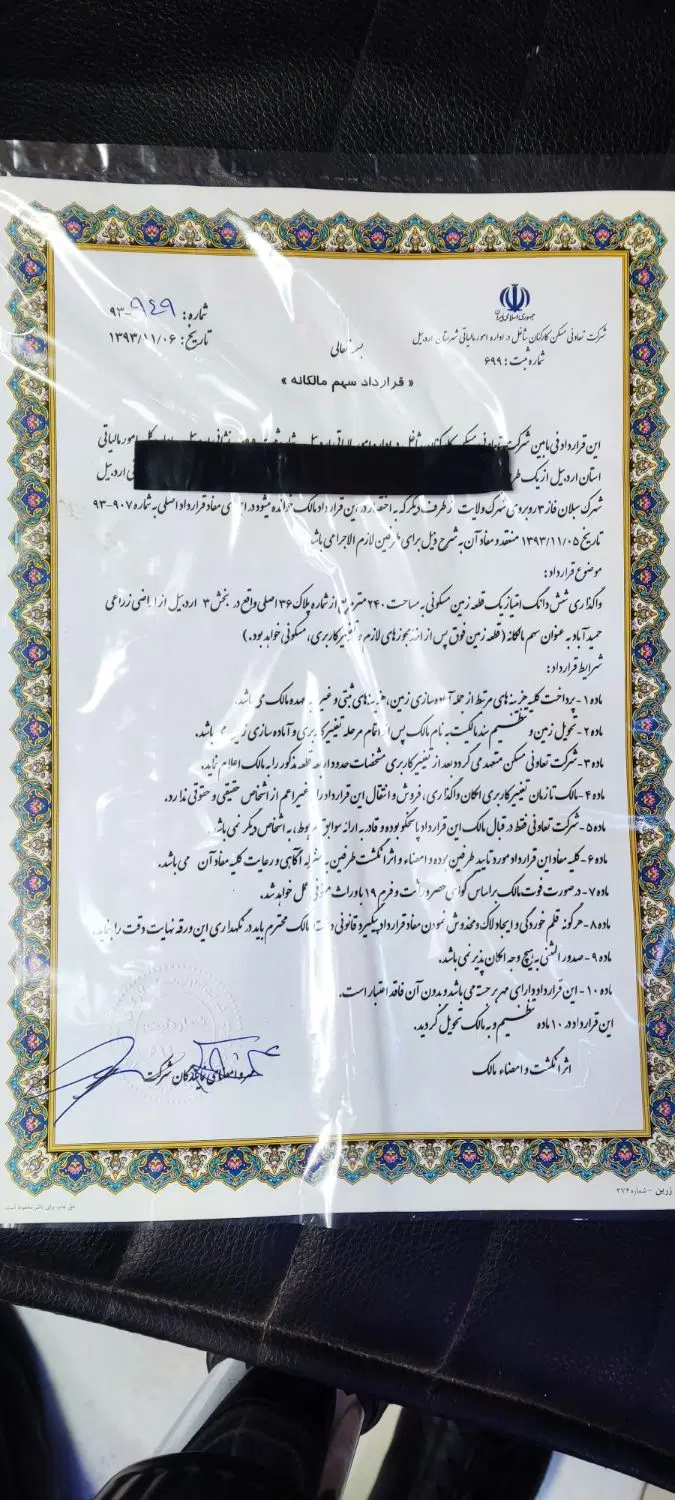 جمهوری اسلامی ایران
شرکت تعاونی مسکن کارکنان شاغل در اداره امور مالیاتی شهرستان اردبیل
شماره ثبت : ۶۹۹
شماره : ۹۴۹-۹۳
تاریخ : ۱۳۹۳/۱۱/۰۶
بسمه تعالی
« قرارداد سهم مالکانه »
این قرارداد فی مابین شرکت تعاونی مسکن امور مالیاتی
استان اردبیل از یک اردبیل
شهرک سبلان فاز ۳ روبروی شهرک ولایت از طرف دیگر که به اختصار در این قرارداد مالک خوانده میشود در مفاد قرارداد اصلی به شماره ۹۰۷-۹۳
تاریخ ۱۳۹۳/۱۱/۰۵ منعقد و مفاد آن به شرح ذیل برای طرفین لازم الاجرا می باشد
موضوع قرارداد :
واگذاری شش دانگ امتیاز یک قطعه زمین مسکونی به مساحت ۲۴۰ مترمربع از شماره پلاک ۳۶ اصلی واقع در بخش ۳ اردبیل از اراضی زراعی
حمید آباد به عنوان سهم مالکانه ( قطعه زمین فوق پس از اخذ مجوز های لازم و تغییر کاربری، مسکونی خواهد بود. )
شرایط قرارداد :
ماده ۱- پرداخت کلیه هزینه های مرتبط از جمله آماده سازی زمین، هزینه های ثبتی و غیره به عهده مالک می باشد.
ماده ۲- تحویل زمین و تنظیم سند مالکیت به نام مالک پس از اتمام مرحله تغییر کاربری و آماده سازی زمین می باشد.
ماده ۳- شرکت تعاونی مسکن متعهد می گردد بعد از تغییر کاربری مشخصات حدود اربعه قطعه مذکور را به مالک اعلام نماید.
ماده ۴- مالک تا زمان تغییر کاربری امکان واگذاری، فروش و انتقال این قرارداد را به غیر اعم از اشخاص حقیقی و حقوقی ندارد.
ماده ۵- شرکت تعاونی فقط در قبال مالک این قرارداد پاسخگو بوده و قادر به ارائه سوابق مربوط، به اشخاص دیگر نمی باشد.
ماده ۶- کلیه مفاد این قرارداد مورد تایید طرفین بوده و امضاء و اثر انگشت طرفین به منزله آگاهی و رعایت کلیه مفاد آن می باشد.
ماده ۷- در صورت فوت مالک بر اساس گواهی حصر وراثت و فرم ۱۹ با وراث عمل خواهد شد.
ماده ۸- هرگونه قلم خوردگی و ایجاد لاک و مخدوش نمودن مفاد قرارداد پیگیرد قانونی دارد مالک محترم باید در نگهداری این ورقه نهایت دقت را بنماید.
ماده ۹- صدور المثنی به هیچ وجه امکان پذیر نمی باشد.
ماده ۱۰- این قرارداد دارای مهر برجسته می باشد و بدون آن فاقد اعتبار است.
این قرارداد در ۱۰ ماده تنظیم و به مالک تحویل گردید.
اثر انگشت و امضاء مالک
مهر و امضای نمایندگان شرکت
زرین - شماره ۳۷۴
حق چاپ برای ناشر محفوظ است